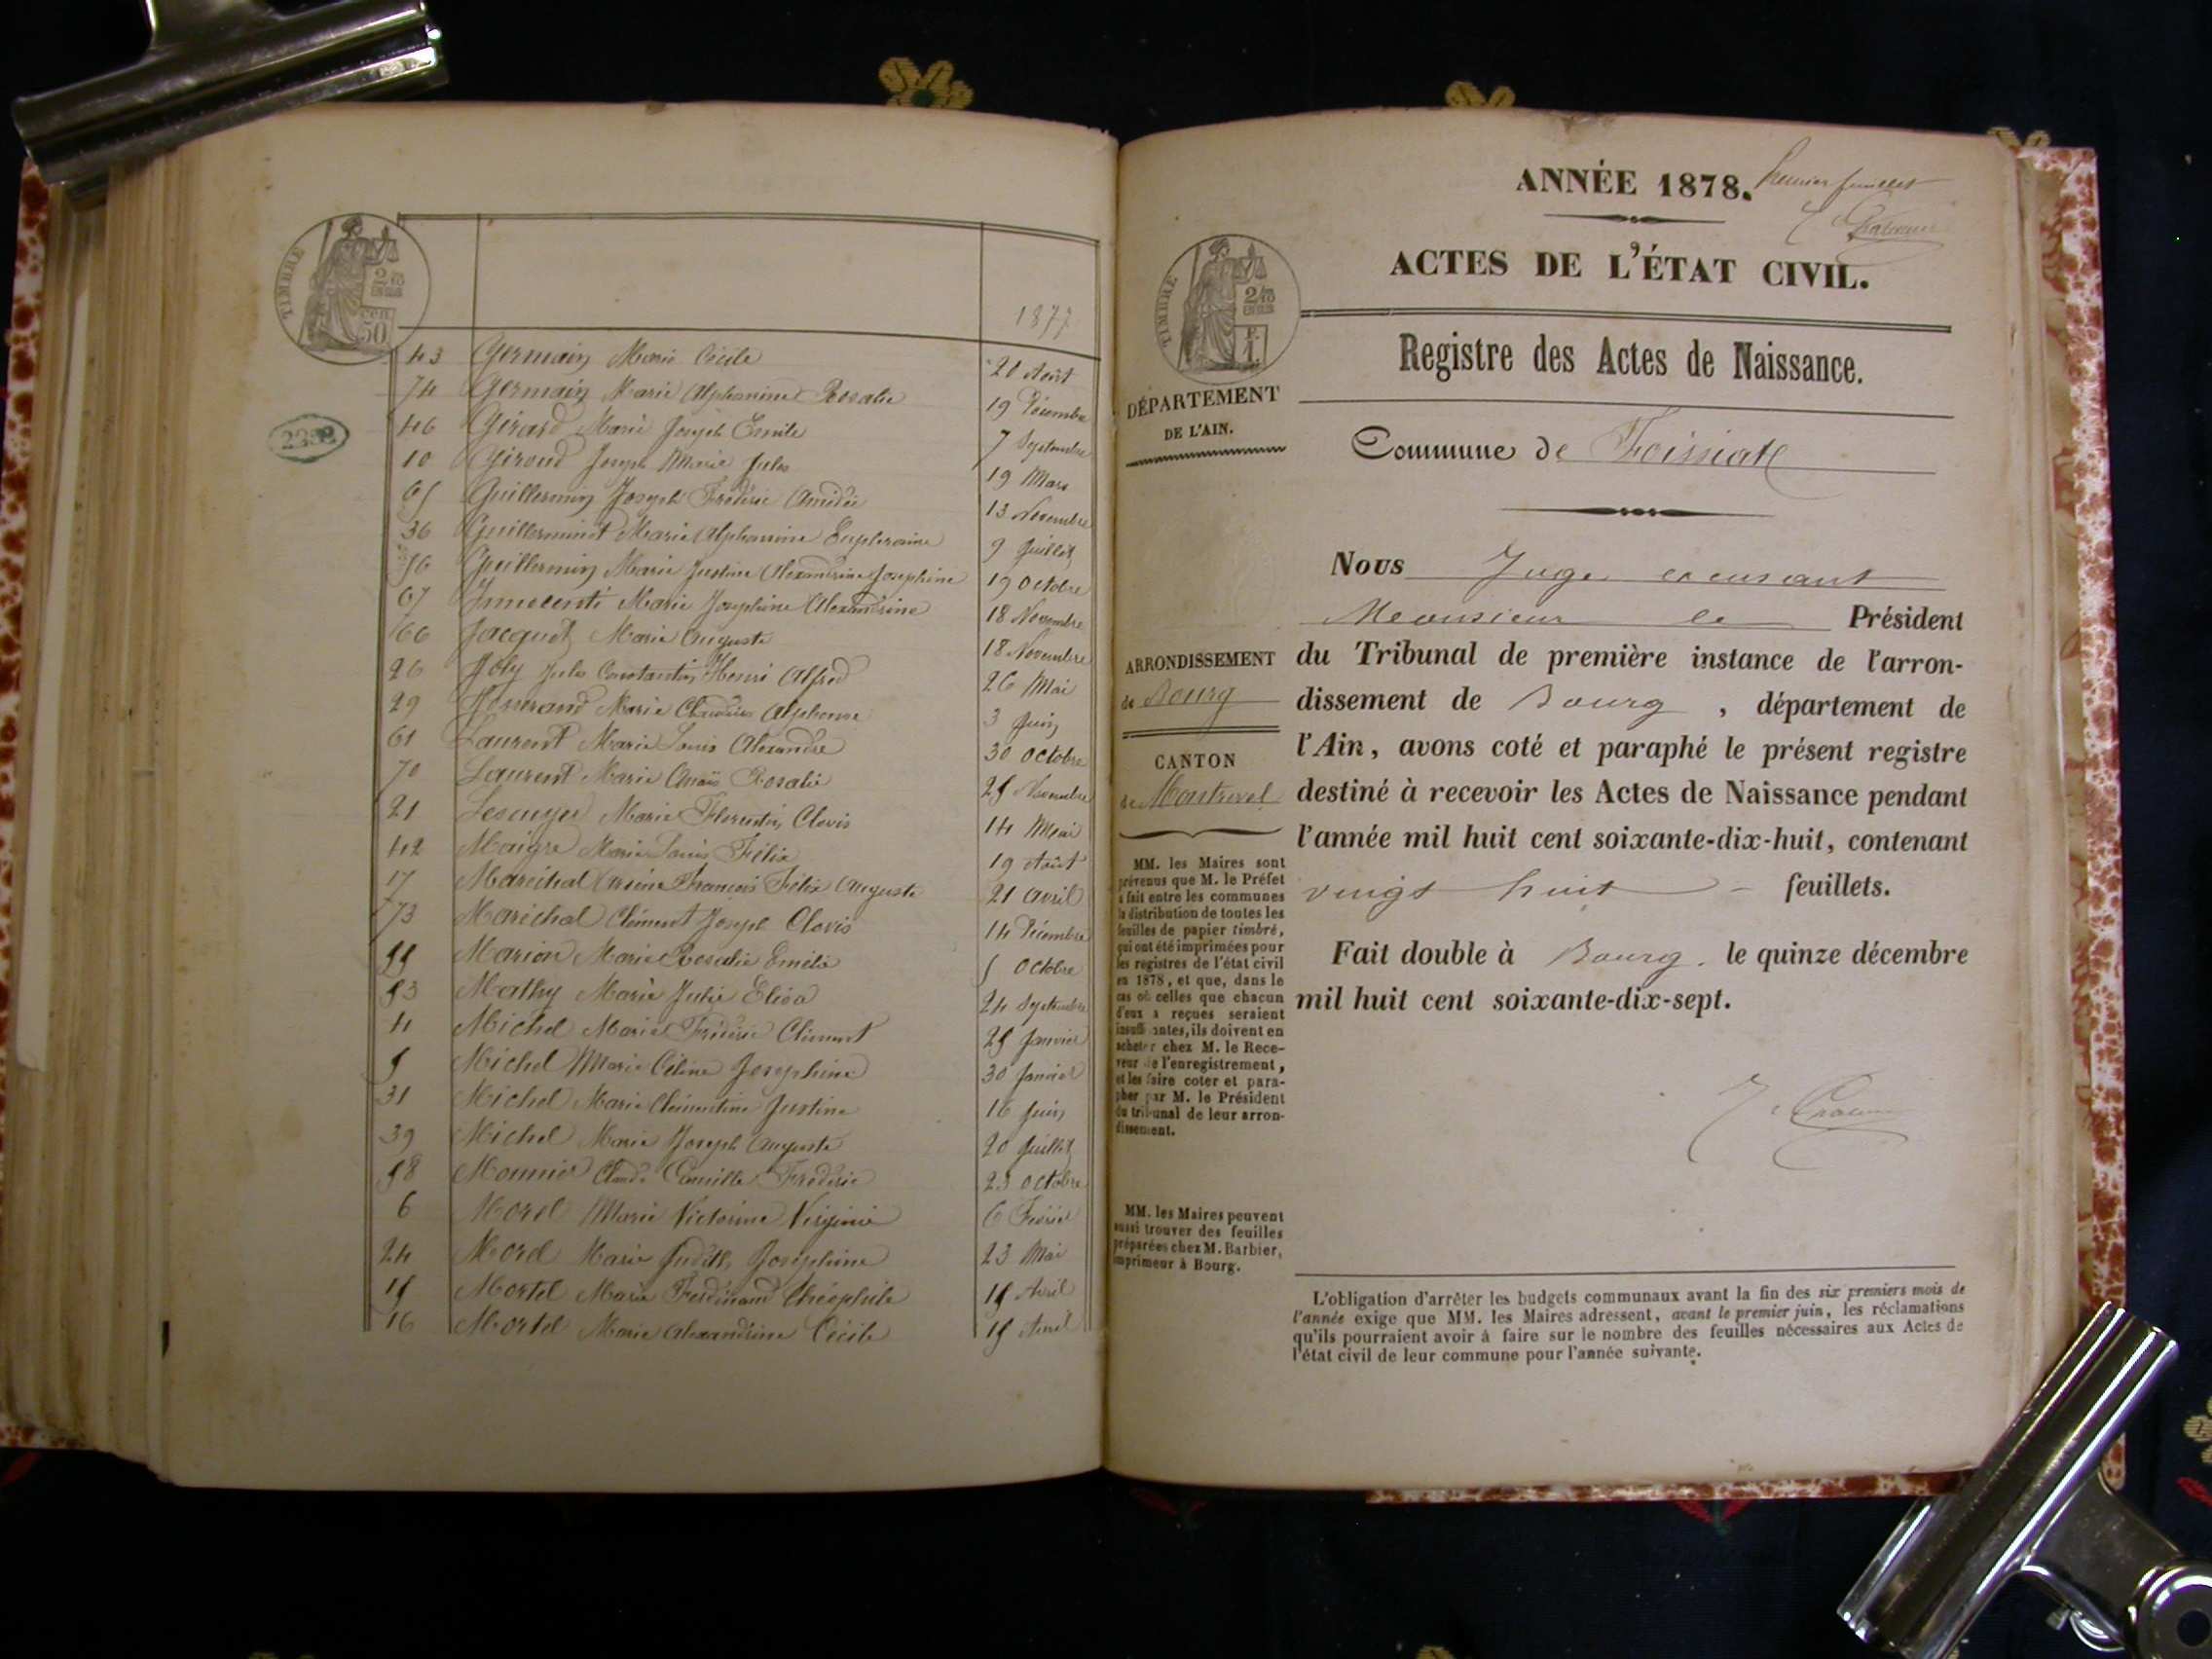 TIMBRE
2/10 EN SUS
CEN. 50
2232
1877
43 Germain Marie Cécile 21 Août
74 Germain Marie Alphonsine Rosalie 19 Décembre
46 Girard Marie Joseph Emile 7 Septembre
10 Giroud Joseph Marie Jules 19 Mars
65 Guillermin Joseph Frédéric Amédée 13 Novembre
36 Guilleminot Marie Alphonsine Euphrosine 9 Juillet
56 Guillermin Marie Justine Alexandrine Josephine 19 Octobre
67 Innocenti Marie Josephine Alexandrine 18 Novembre
66 Jacquet Marie Auguste 18 Novembre
26 Joly Jules Constantin Henri Alfred 26 Mai
29 Marie Claudius Alphonse 3 Juin
61 Laurent Marie Louis Alexandre 30 Octobre
70 Laurent Marie Anaïs Rosalie 25 Novembre
21 Lescuyer Marie Florentin Clovis 14 Mai
42 Maigre Marie Louis Félix 19 Août
17 Maréchal Arsène François Félix Auguste 21 Avril
73 Maréchal Clément Joseph Clovis 14 Décembre
55 Marion Marie Rosalie Emélie 5 Octobre
53 Mathy Marie Julie Elisa 24 Septembre
4 Michel Marie Frédéric Clément 25 Janvier
5 Michel Marie Céline Josephine 30 Janvier
31 Michel Marie Clémentine Justine 16 Juin
39 Michel Marie Joseph Auguste 20 Juillet
58 Monnier Claude Camille Frédéric 23 Octobre
6 Morel Marie Victorine Virginie 6 Février
24 Morel Marie Judith Joséphine 23 Mai
15 Mortel Marie Ferdinand Théophile 15 Avril
16 Mortel Marie Alexandrine Cécile 15 Avril
ANNÉE 1878.
Premier feuillet
ACTES DE L'ÉTAT CIVIL.
TIMBRE
2/10 EN SUS
F. 1
Registre des Actes de Naissance.
DÉPARTEMENT
DE L'AIN.
Commune de Foissiat
Nous Juge excusant
Monsieur le Président
du Tribunal de première instance de l'arron-
dissement de Bourg, département de
l'Ain, avons coté et paraphé le présent registre
destiné à recevoir les Actes de Naissance pendant
l'année mil huit cent soixante-dix-huit, contenant
vingt huit feuillets.
Fait double à Bourg, le quinze décembre
mil huit cent soixante-dix-sept.
ARRONDISSEMENT
de Bourg
CANTON
de Montrevel
MM. les Maires sont
prévenus que M. le Préfet
a fait entre les communes
la distribution de toutes les
feuilles de papier timbré,
qui ont été imprimées pour
les registres de l'état civil
en 1878, et que, dans le
cas où celles que chacun
d'eux a reçues seraient
insuffisantes, ils doivent en
acheter chez M. le Rece-
veur de l'enregistrement,
et les faire coter et para-
pher par M. le Président
du tribunal de leur arron-
dissement.
MM. les Maires peuvent
aussi trouver des feuilles
préparées chez M. Barbier,
imprimeur à Bourg.
L'obligation d'arrêter les budgets communaux avant la fin des six premiers mois de
l'année exige que MM. les Maires adressent, avant le premier juin, les réclamations
qu'ils pourraient avoir à faire sur le nombre des feuilles nécessaires aux Actes de
l'état civil de leur commune pour l'année suivante.